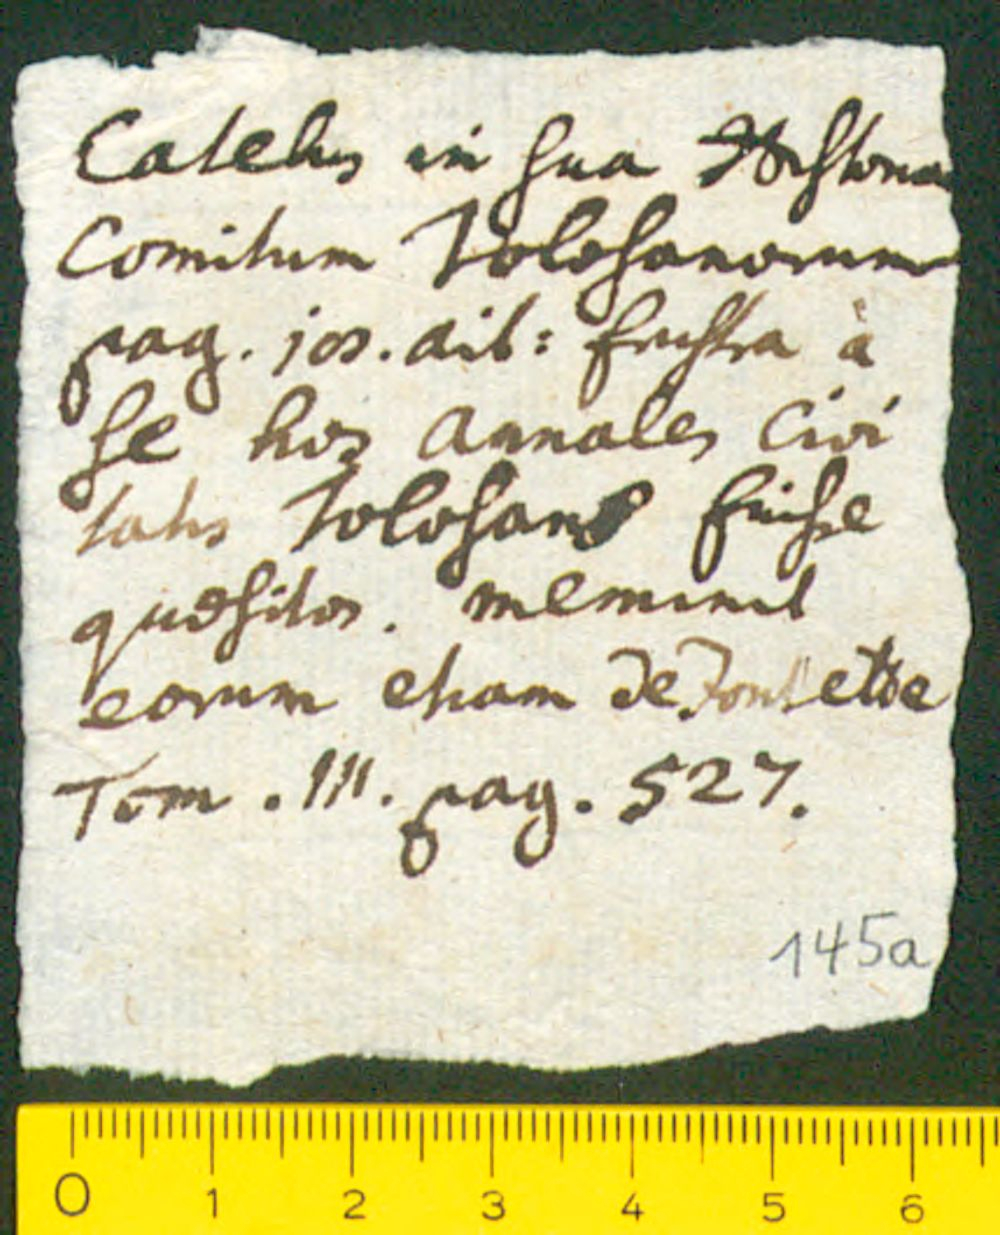 Catelus in sua Historia
Comitum Tolosanorum
pag. jos. ait: frustra à
se hos Annales Civi
tatis Tolosanæ fuisse
quæsitos. meminit
eorum etiam De Fontette
Tom. III. pag. 527.
145a
0 1 2 3 4 5 6